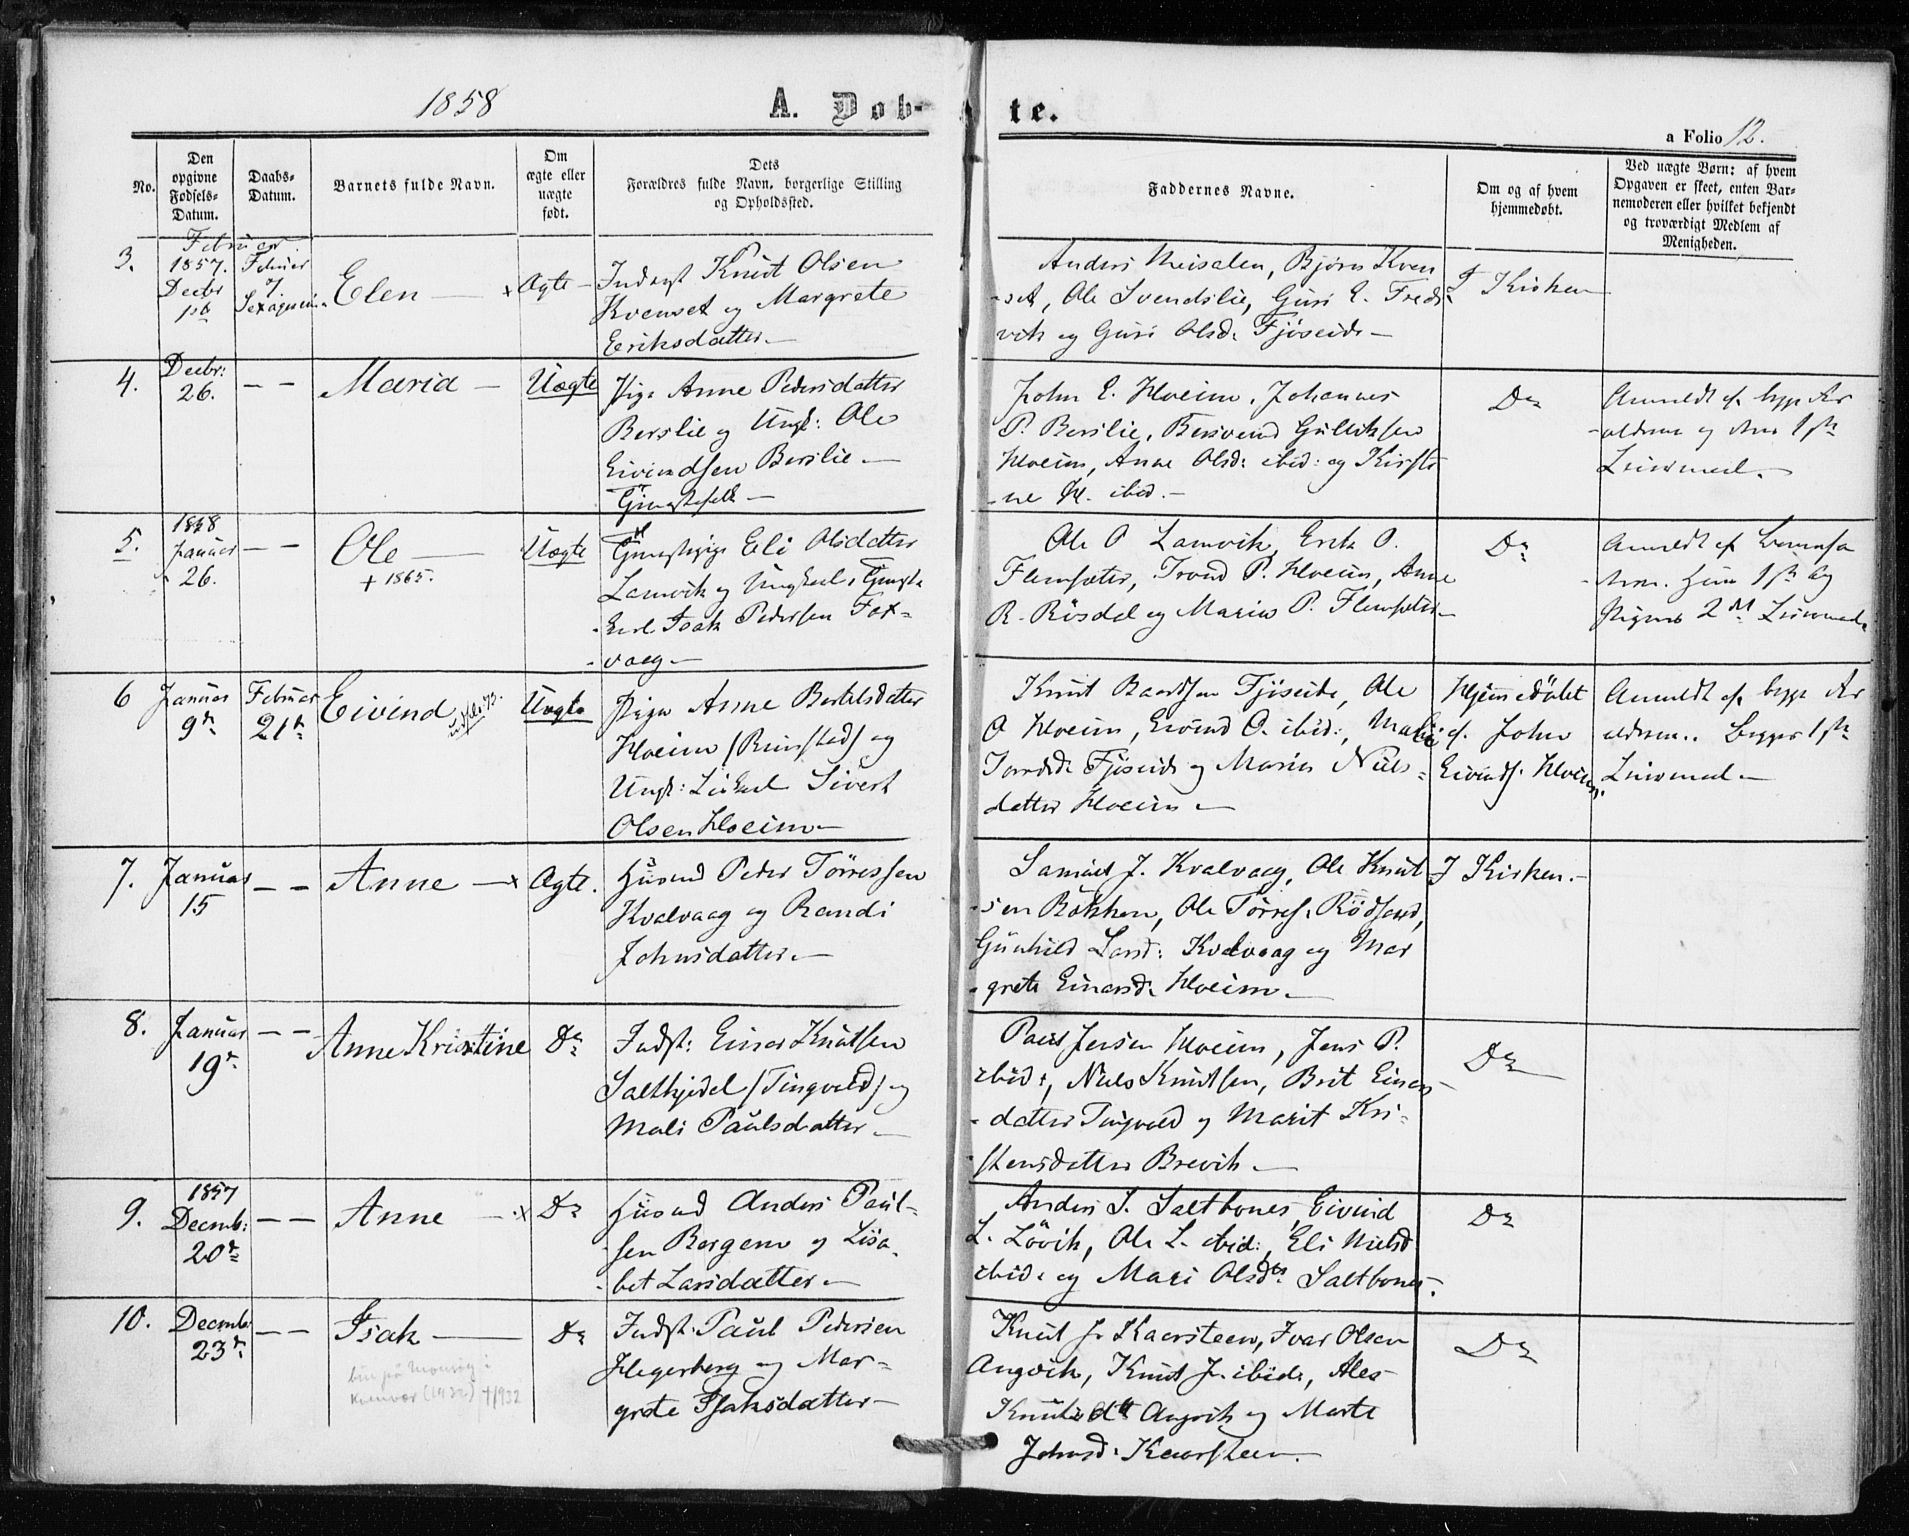 1858
A. Døb-
te.
a Folio 12.
No.
Den
opgivne
Fødsels-
Datum.
Daabs-
Datum.
Barnets fulde Navn.
Om
ægte eller
uægte
født.
Dets
Forældres fulde Navn, borgerlige Stilling
og Opholdssted.
Faddernes Navne.
Om og af hvem
hjemmedøbt.
Ved uægte Børn: af hvem
Opgaven er skeet, enten Bar-
nemoderen eller hvilket bekjendt
og troværdigt Medlem af
Menigheden.
3.
Februar.
1857.
Decbr
1ste
Februar
7.
Elen
Ægte
Knut Olsen
Kvenset og Margrete
Eriksdatter
Anders Meisalen, Bjørn Kven
-set, Ole Svendslie, Guri E. Freds
vik og Guri Olsd: Fjøseide
I Kirken
4.
Decbr:
26.
Maria
Uægte
Pige Anne Pedersdatter
Berslie og Ungk: Ole
Eivindsen Berslie
John E. Hoeim, Johannes
P. Berslie, Gulliksen
Hoeim, Anne Olsd: ibid: og Kirsti
-ne H. ibid.
Do
Anmeldt af begge For
-ældrene og 1ste
Leiermaal.
5.
1858
Januar
26.
Ole
+ 1865.
Uægte
Eli Olsdatter
Lamvik og Ungkarl,
Isak Pedersen Fox-
-vaag
Ole O Lamvik, Erik O.
Trond P. Hoeim, Anne
R. Rösdal og Marius P.
Do
Anmeldt af
1ste og
Pigens 2det
6
Januar
9de
Februar
21de
Eivind
Uægte
Pige Anne Bertelsdatter
Hoeim og
Ungk: Sivert
Olsen Hoeim
Knut Baardsen Fjöseide, Ole
O Hoeim, Eivind O. ibid:,
Fjöseide og Marius Niels-
datter Hoeim
Hjemmedöbt
af John
Eivinds. Hoeim.
Anmeldt af begge For
ældrene. Begges 1ste
Leiermaal
7.
Januar
15
Anne
Ægte.
Husmd Peder Törressen
Kvalvaag og Randi
Johnsdatter
Samuel J. Kvalvaag, Ole Knut
-sen Bökken, Ole Törres: Rödsand,
Gunhild Larsd: Kvalvaag og Mar
-grete Einarsd: Hoeim
I Kirken.
8.
Januar
19de
Anne Kristine
Do
Indst: Einar Knutsen
Saltkjelel (Tingvold) og
Mali Paulsdatter
Paul Jensen Hoeim, Jens P.
ibid:, Niels Knutsen, Brit Einars
-datter Tingvold og Marit Kri-
stensdatter Brevik
Do
9.
1857
Decmb:
20de
Anne
Do
Husmd Anders Paul-
sen Bergem og Lisa-
-bet Larsdatter
Anders S. Saltbones, Eivind
L. Lövik, Ole L. ibid:, Eli Nielsd
ibid: og Mari Olsdtr Saltbones.
Do
10.
Decmb:
23de
Isak
(1932) +1932
Do
Indst: Paul Pedersen
Hegerberg og Mar-
grete Isaksdatter
Knut J. Kaarsteen, Ivar Olsen
Angvik, Knut J. ibid:, Ales
Knutsdtr Angvik og Marte
Johnsd: Kaarsteen.
Do